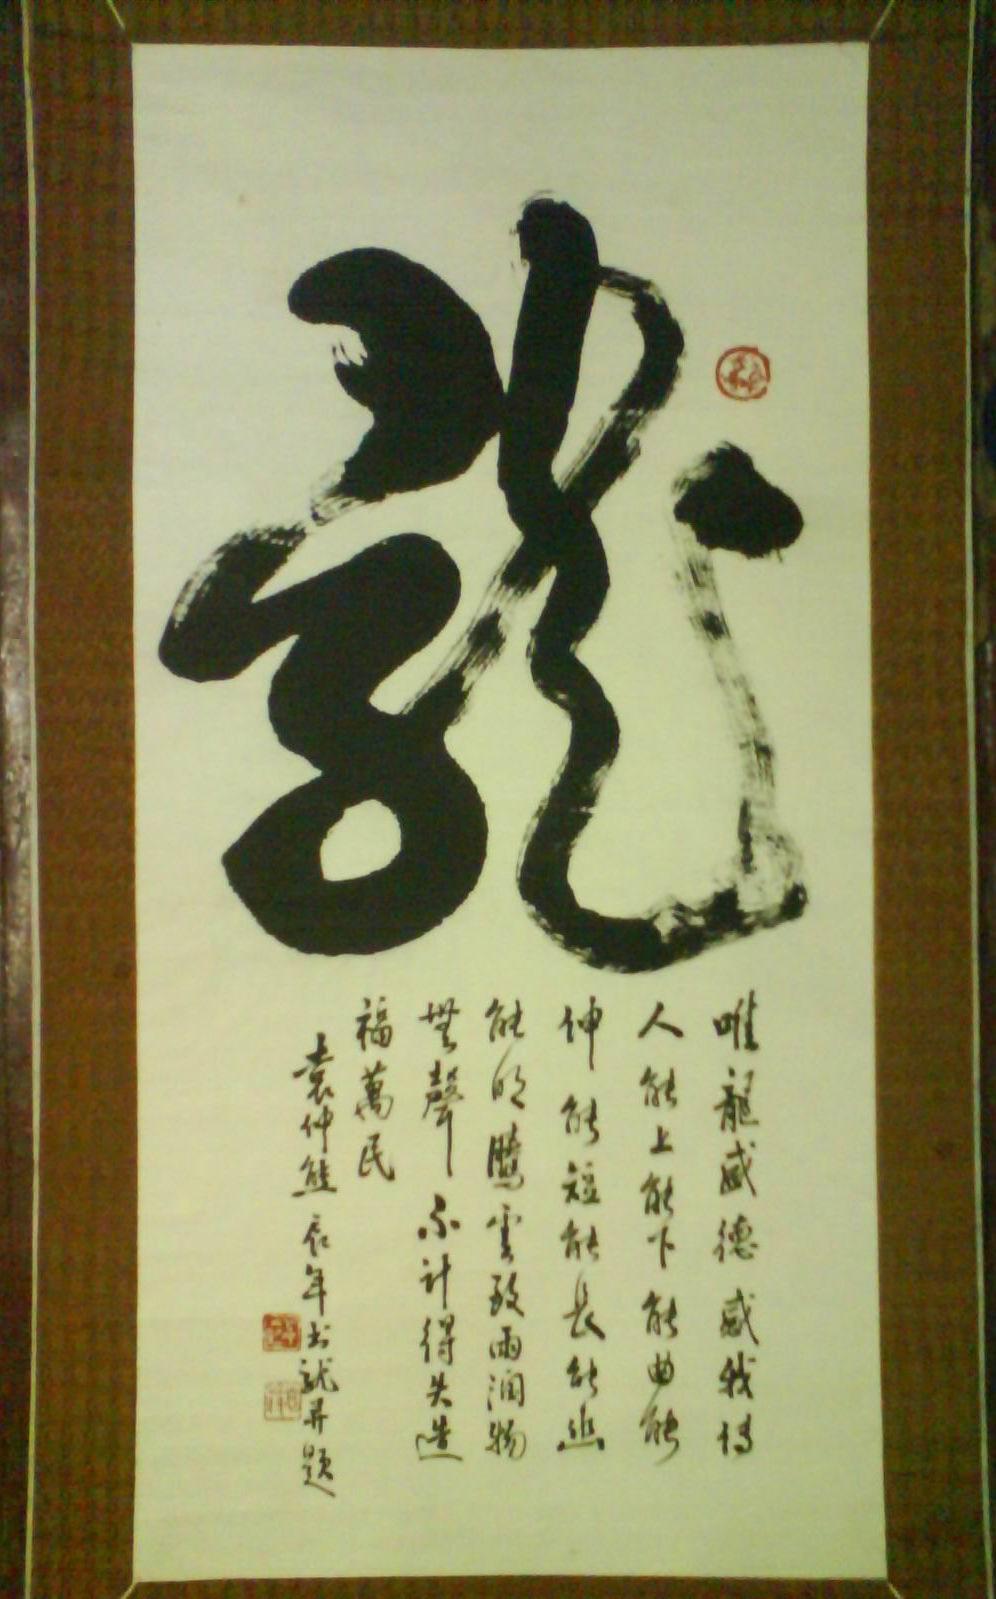 龍
唯龍盛德感我傳
人能上能下能曲能
伸能短能長能幽
能明騰雲致雨潤物
無聲不計得失造
福萬民
袁仲熊辰年书龍并題